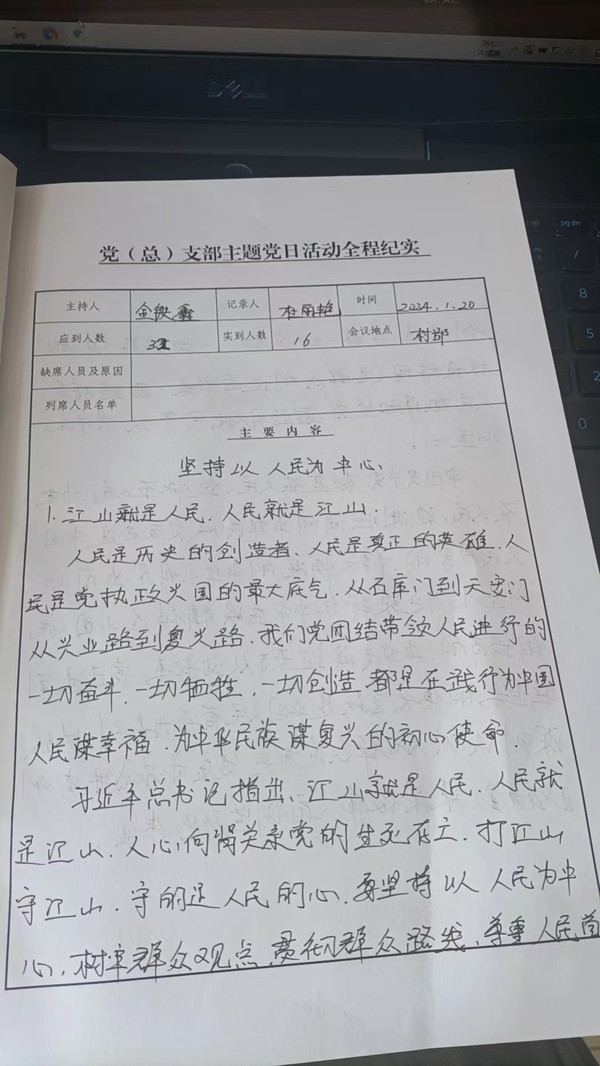 DELL
党（总）支部主题党日活动全程纪实
主持人 金 记录人 杜雨艳 时间 2024.1.20
应到人数 实到人数 16 会议地点 村部
缺席人员及原因
列席人员名单
主要内容
坚持以人民为中心.
1.江山就是人民.人民就是江山.
人民是历史的创造者、人民是真正的英雄.人
民是党执政兴国的最大底气.从石库门到天安门
从兴业路到复兴路.我们党团结带领人民进行的
一切奋斗.一切牺牲.一切创造.都是在践行为中国
人民谋幸福.为中华民族谋复兴的初心使命.
习近平总书记指出、江山就是人民、人民就
是江山.人心向背关系党的生死存立.打江山
守江山.守的是人民的心.要坚持以人民为中
心.树牢群众观点.贯彻群众路线.尊重人民首
pg dn
8
5
2
0